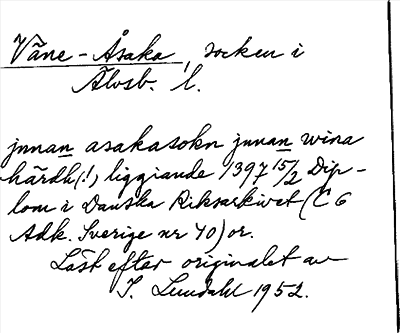 Väne-Åsaka, socken i
Älvsb. l.
jnnan asakasokn jnnan wina
härdh(!), liggiande 1397 15/2 Dip-
lom i Danska Riksarkivet (C 6
Adk. Sverige nr 40) or.
Läst efter originalet av
I. Lundahl 1952.